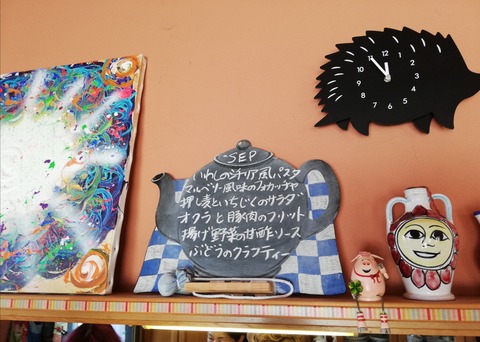 SEP
いわしのシチリア風パスタ
マルベリー風味のフォカッチャ
押し麦といちじくのサラダ
オクラと豚肉のフリット
揚げ野菜の甘酢ソース
ぶどうのクラフティー
11 12 1
10 2
9 3
8 4
7 6 5